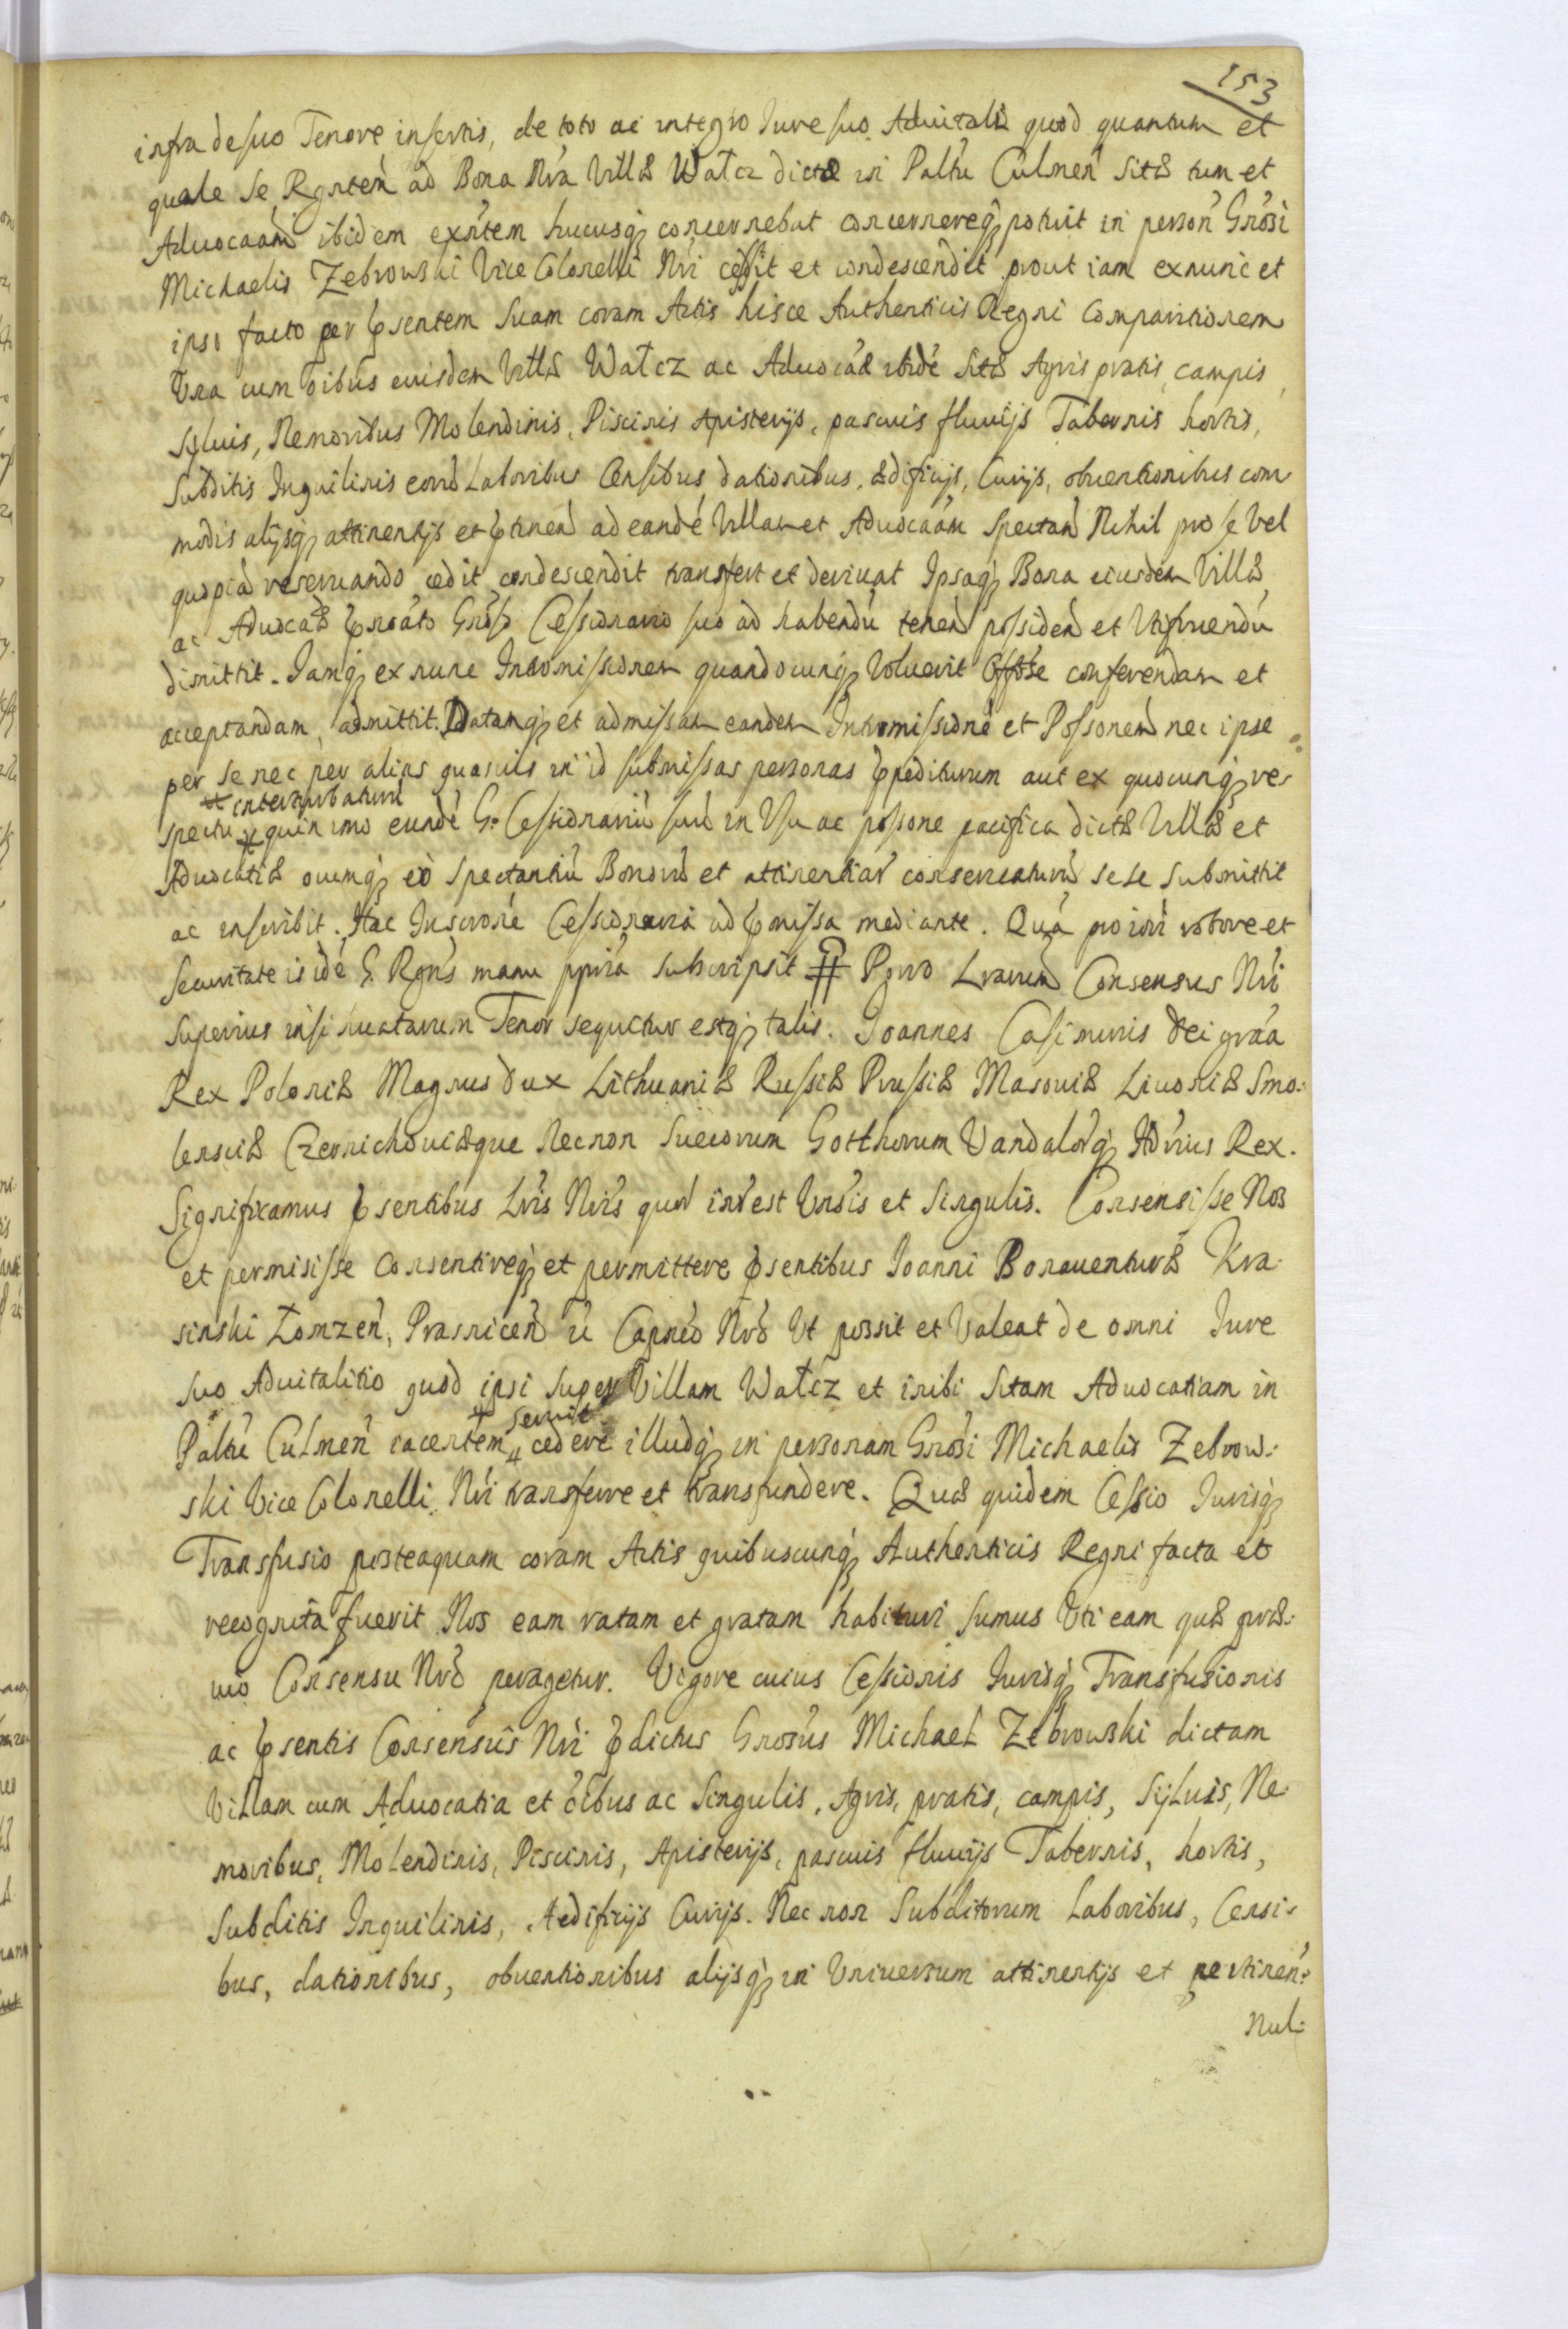 153
infra de suo Tenore insertis, de toto ac integro Iure suo Aduitali quod quantum et
quale se Rgntem̀ ad Bona Nrá Villæ Wałcz dictæ in Palttu Culmeń sitæ tum et
Aduocaam̀ ibidem exńtem hucusq́ concernebat concernereq́ potuit in personḿ Grósi
Michaelis Zebrowski Vice Colonelli Nrí cessit et condescendit prout iam exnunc et
ipso facto per pṡentem Suam coram Actis hisce Authenticis Regni Comparitionem
Vna cum oíbus euisdem Villæ Wałcz ac Aduocáæ ibidé sitæ Agris pratis, campis,
syluis, Nemoribus Molendinis, Piscinis Apisterijs, pascuis fluuijs Tabernis hortis,
Subditis Inquilinis eorú Laboribus Censibus dationibus, ædificijs, Curijs, obuentionibus com
modis alijsq́ attinentijs et ptineń ad eandé Villam et Aduocaám Spectań Nihil pro se vel
quopiá reseruando cedit condescendit transfert et deriuat Ipsaq́ Bona eiusdem Villæ
ac Aduocaæ pnoáto Gróso Cessionario suo ad habendú teneń possideń et Vtifruendú
dimittit. Iamq́ ex nunc Intromissionem quandocunq́ Voluerit Offóse conferendam et
acceptandam, admittit. Datamq́ et admissam eandem Intromissioné et Possonem̀ nec ipse
per se nec per alias quasuis in id submissas personas pṗediturum aut ex quocunq́ re
interturbaturú
spectu quin imo eundé G. Cessionariú suú in Vsu ac possone pacifica dictæ Villæ et
Aduocatiæ ouumq́ eò spectantiú Bonorú et attinentiar conseruaturú sese submittit
ac inscribit. Hac Inscrioné Cessionaria ad pmissa mediante. Quá pro iori robore et
Securitate is idé G. Rgns manu pprìa Subscripsit Porro Lrarum̀ Consensus Nrí
superius insinuatarum Tenor sequitur estq́ talis. Joannes Casimirus Dei gráa
Rex Poloniæ Magnus Dux Lithuaniæ Russiæ Prussiæ Masouiæ Liuoniæ Smo-
lensciæ Czernichouiæque Necnon Suecorum Gotthorum Vandalorq́ Hdrius Rex.
Significamus pṡentibus Lrís Nrís quor intest Vnsis et Singulis. Consensisse Nos
et permisisse Consentireq́ et permittere pṡentibus Joanni Bonauenturæ Kra-
sinski Łomzeń, Prasniceń ú Capneo Nró Vt possit et Valeat de omni Iure
suo Aduitalitio quod ipsi super Villam Wałcz et inibi Sitam Aduocatiam in
seruit
Paltú Culmeń iacentem cedere illudq́ in personam Grósi Michaelis Zebrow-
ski Vice Colonelli Nrí transferre et transfundere. Quæ quidem Cessio Iurisq́
Transfusio posteaquam coram Actis quibuscunq́ Authenticis Regni facta et
recognita fuerit Nos eam ratam et gratam habituri sumus Vti eam quæ præ-
uio Consensu Nró peragetur. Vigore cuius Cessionis Iurisq́ Transfusionis
ac pṡentis Consensûs Nrí pdictus Grosús Michael Zebrowski dictam
Villam cum Aduocatia et oíbus ac Singulis, Agris, pratis, campis, Syluis, Ne-
moribus, Molendinis, Piscinis, Apisterijs, pascuis fluuijs Tabernis, hortis,
Subditis Inquilinis, Aedificijs Curijs. Nec non Subditorum Laboribus, Censi-
bus, dationibus, obuentionibus alijsq́ in Vniuersum attinentijs et pertineń:
nul: